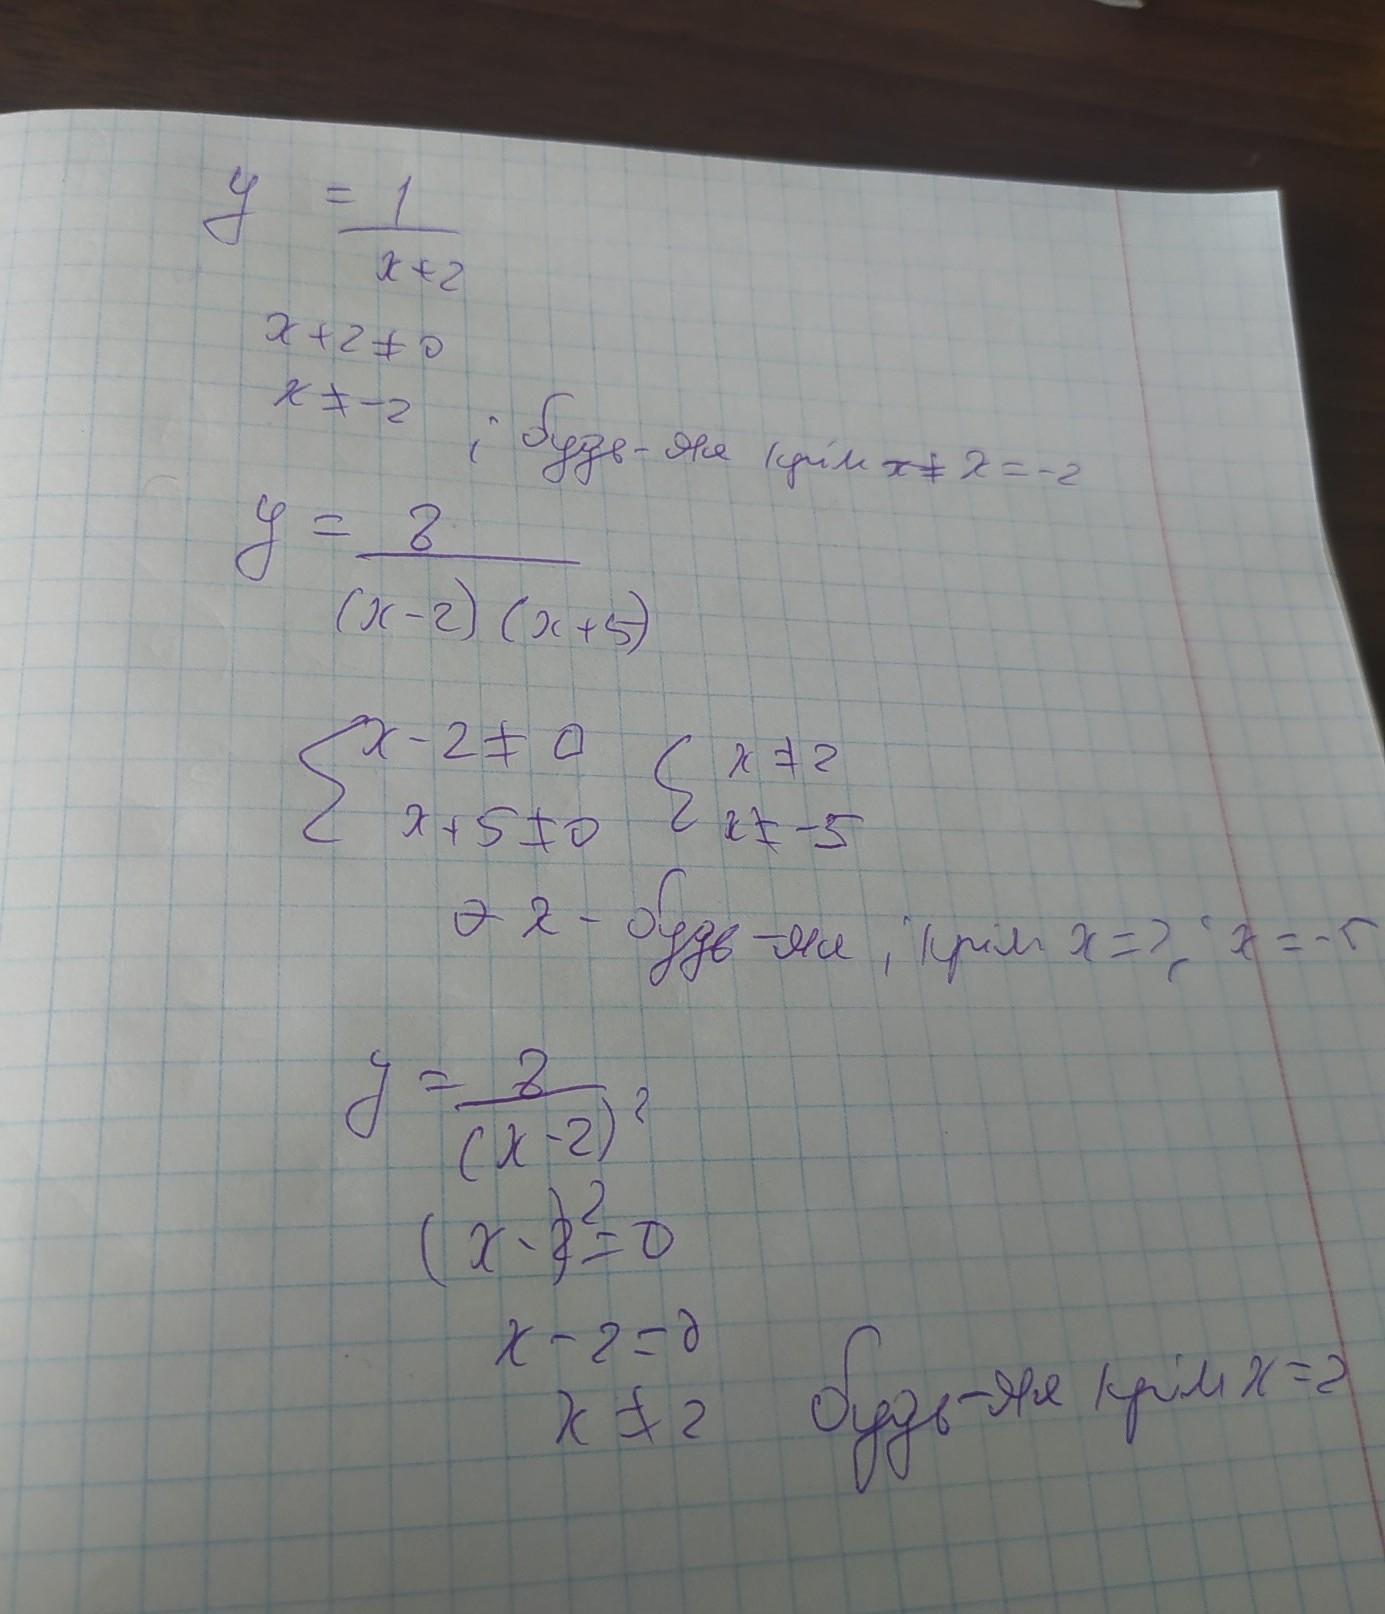 y = 1
x+2
x+2≠0
x≠-2
; будь-яке крім x≠ x=-2
y = 8
(x-2) (x+5)
{ x-2≠0 { x≠2
x+5≠0 x≠-5
x - будь-яке, крім x=2; x=-5
y = 8
(x-2)²
(x-2)²=0
x-2=0
x≠2 будь-яке крім x=2